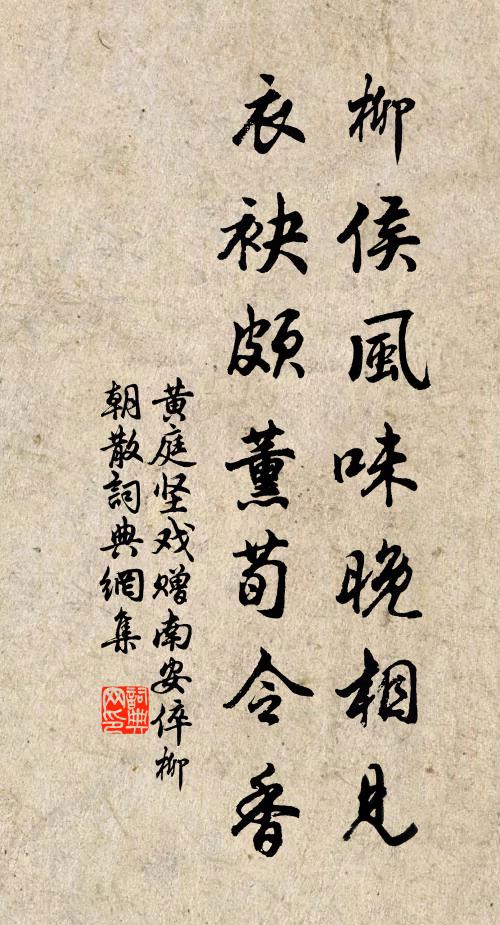 柳侯風味晚相見
衣袂頗薰荀令香
黄庭坚戏赠南安倅柳
朝散詞典網集
詞典
网印